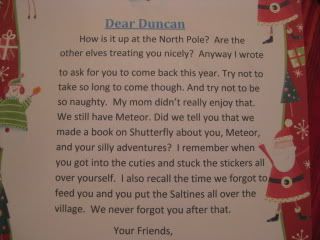 Dear Duncan
How is it up at the North Pole? Are the
other elves treating you nicely? Anyway I wrote
to ask for you to come back this year. Try not to
take so long to come though. And try not to be
so naughty. My mom didn't really enjoy that.
We still have Meteor. Did we tell you that we
made a book on Shutterfly about you, Meteor,
and your silly adventures? I remember when
you got into the cuties and stuck the stickers all
over yourself. I also recall the time we forgot to
feed you and you put the Saltines all over the
village. We never forgot you after that.
Your Friends,